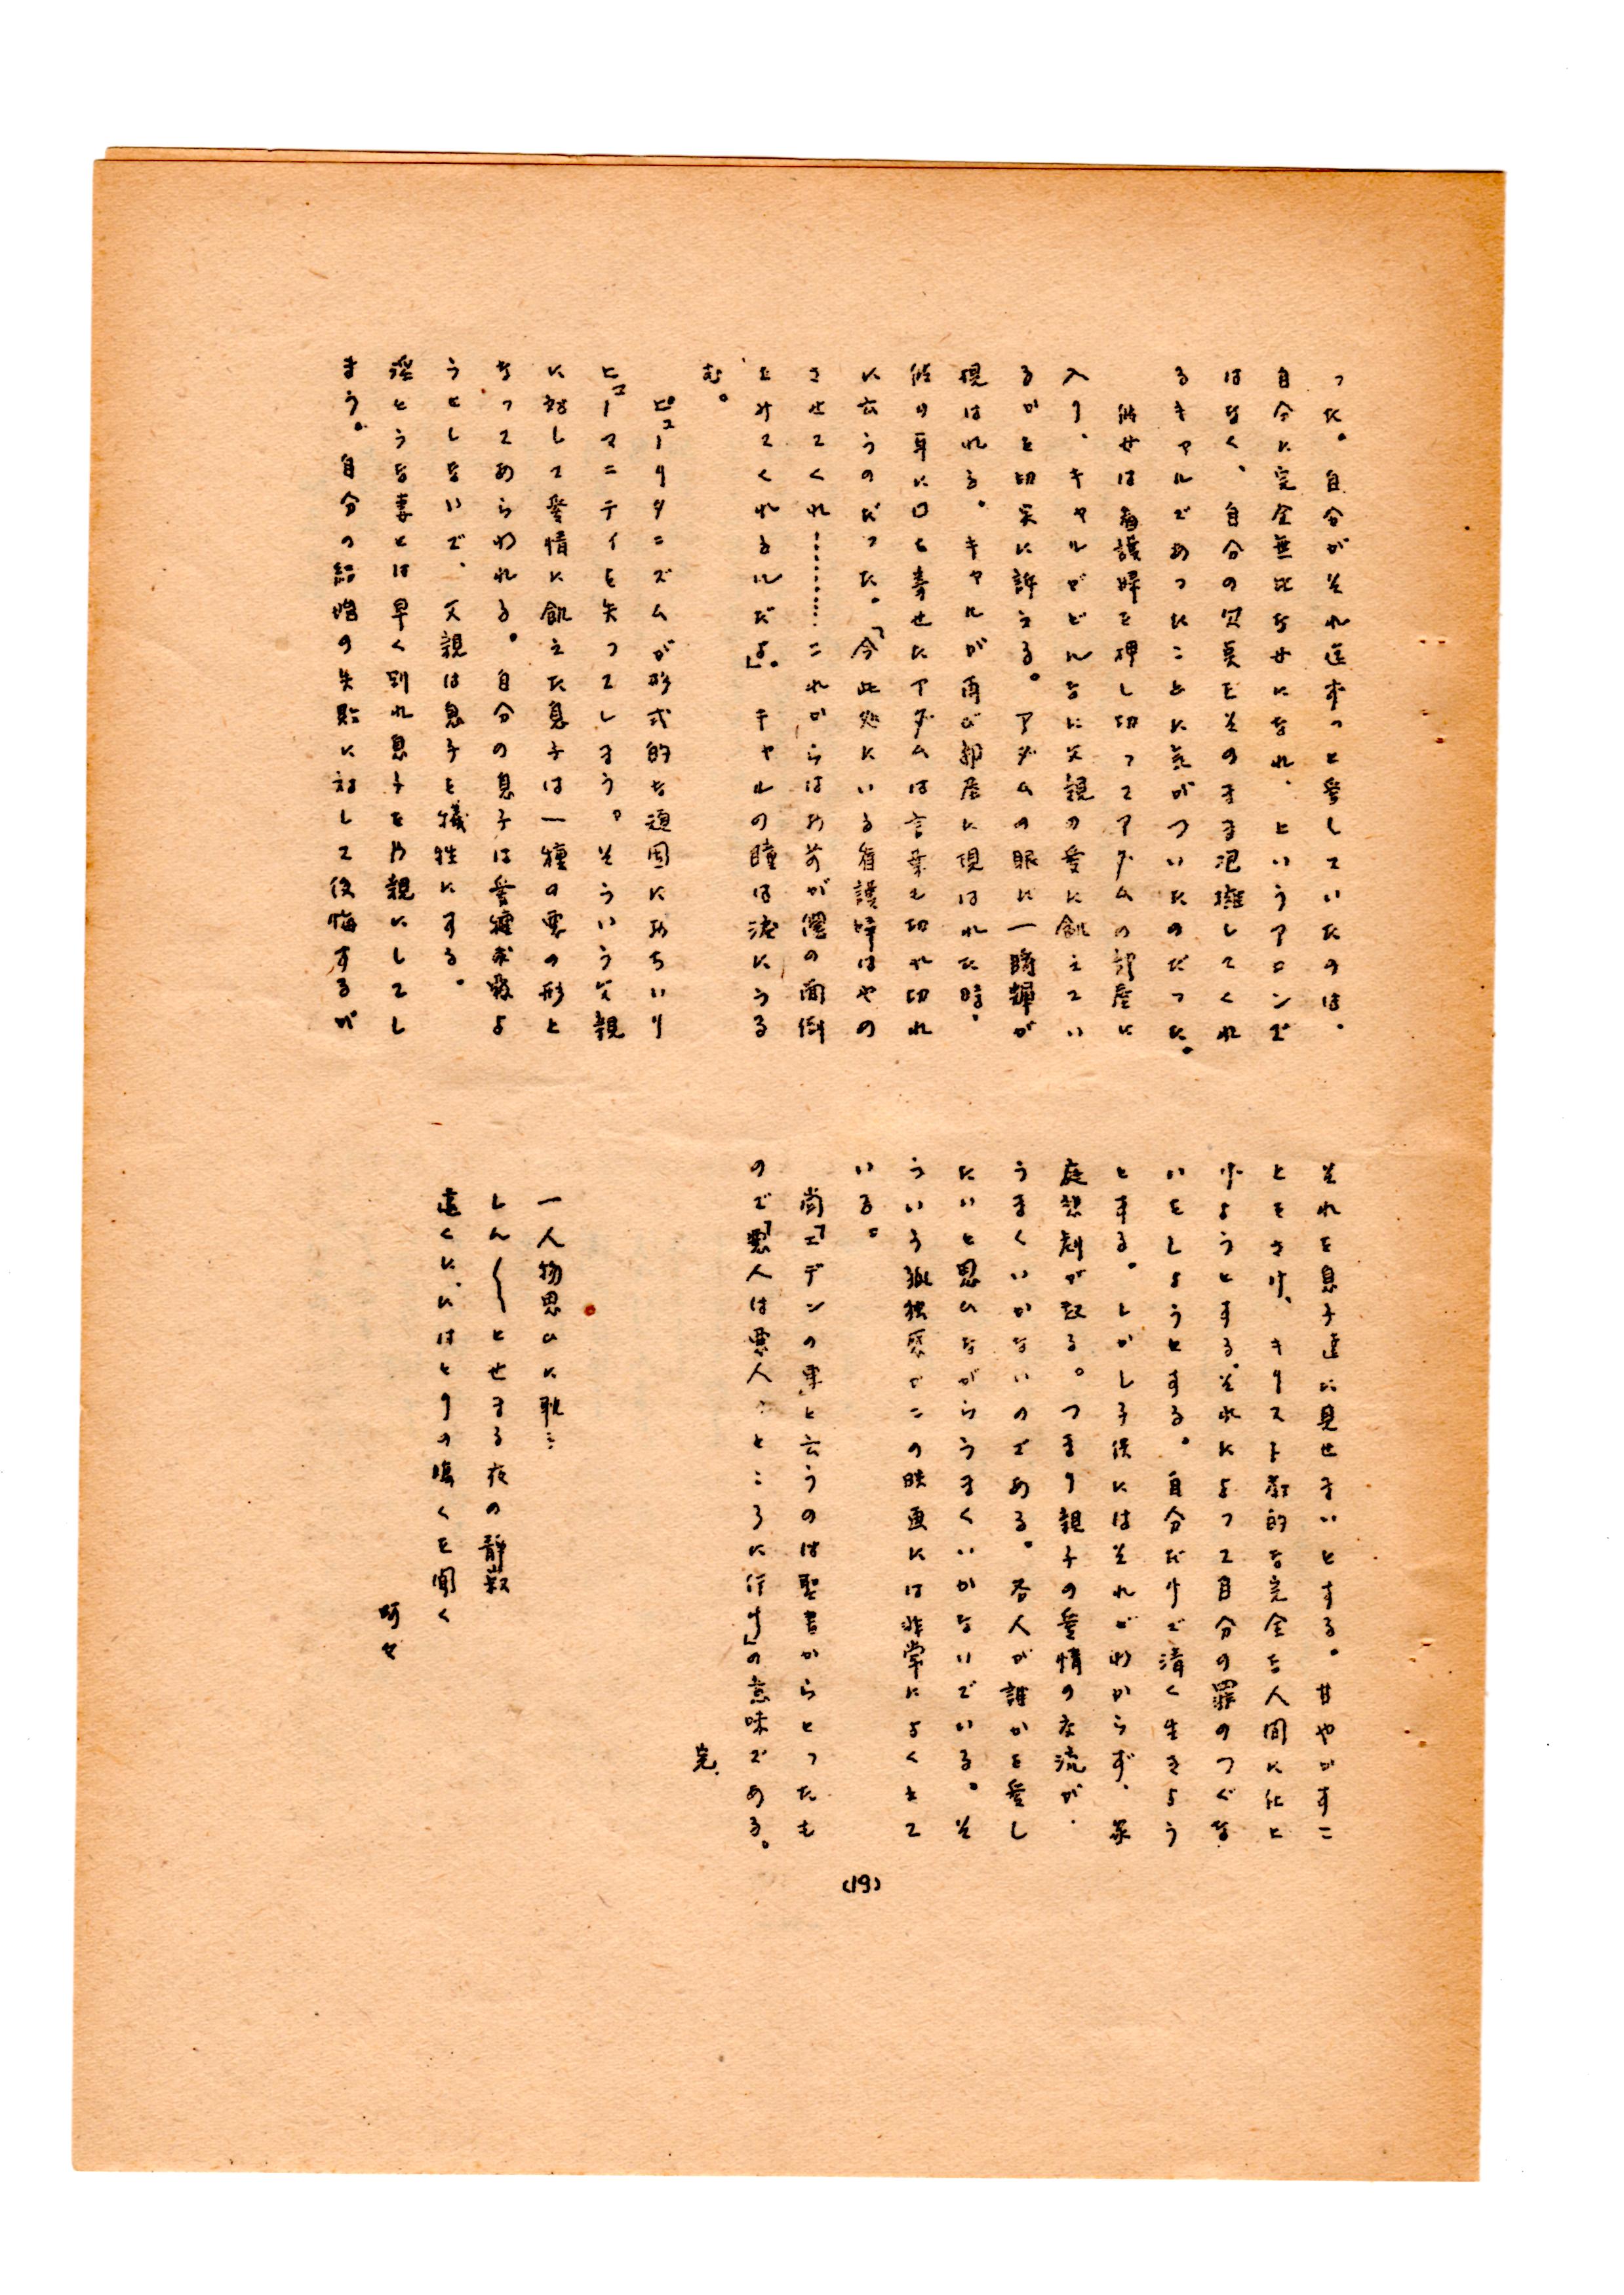 った。自分がそれ迄ずっと愛していたのは、
自分に完全無比なサになれ、というアロンで
はなく、自分の欠点をそのまま抱擁してくれ
るキャルであったことに気がついたのだった。
彼女は看護婦を押し切ってアダムの部屋に
入り、キャルがどんなに父親の愛に飢えてい
るかを切実に訴える。アダムの眼に一瞬輝が
現はれる。キャルが再び部屋に現はれた時、
彼の耳に口を寄せたアダムは言葉も切れ切れ
に云うのだった。「今此処にいる看護婦はやめ
させてくれ………これからはお前が僕の面倒
をみてくれるんだよ」。キャルの瞳は涙にうる
む。
ピューリタニズムが形式的な頑固におちいり
ヒューマニティを失ってしまう。そういう父親
に対して愛情に飢えた息子は一種の悪の形と
なってあらわれる。自分の息子は愛情を求めよ
うとしないで、父親は息子を犠牲にする。
淫とうな妻とは早く別れ息子を片親にしてし
まう。自分の結婚の失敗に対して後悔するが
それを息子達に見せまいとする。甘やかすこ
とをさけ、キリスト教的な完全な人間に仕上
げようとする。それによって自分の罪のつぐな
いをしようとする。自分だけで清く生きよう
とする。しかし子供にはそれがわからず、家
庭悲劇が起る。つまり親子の愛情の交流が、
うまくいかないのである。各人が誰かを愛し
たいと思ひながらうまくいかないでいる。そ
ういう孤独感がこの映画には非常によくきて
いる。
尚「エデンの東」と云うのは聖書からとったも
ので「悪人は悪人のところに行け」の意味である。
完.
一人物思ひに耽ミ
しん〱とせまる夜の静寂
遠くに、にはとりの鳴くを聞く
(19)